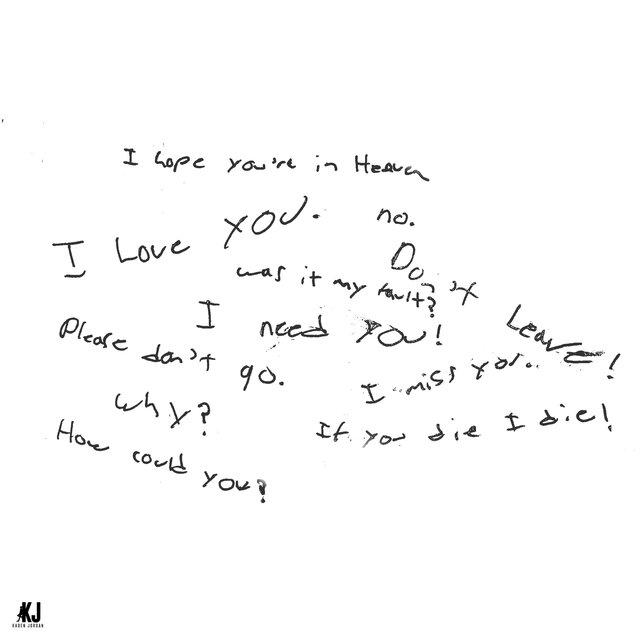 I hope you're in Heaven
I Love you.
no.
was it my fault?
Don't Leave!
I need you!
Please don't go.
I miss you.
why?
If you die I die!
How could you?
KJ
KADEN JORDAN